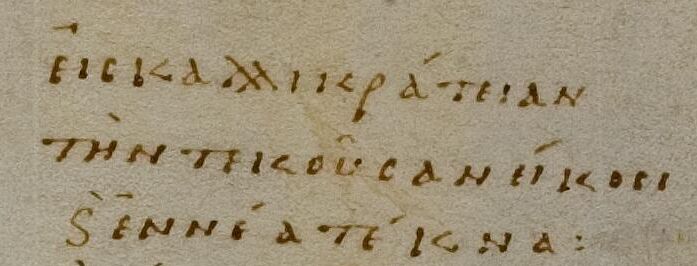 εἰς καλλικράτειαν
τὴν τεκοῦσαν εἴκοσι
ϗ ἐννέα τέκνα: